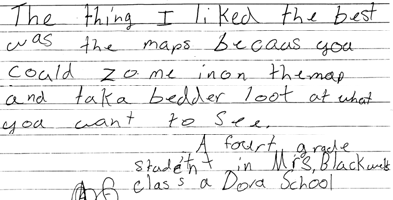 The thing I liked the best
was the maps becaus you
could zome inon themap
and taka bedder loot at what
you want to see.
A fourt grade
student in Mrs, Blackwells
class a Dora School